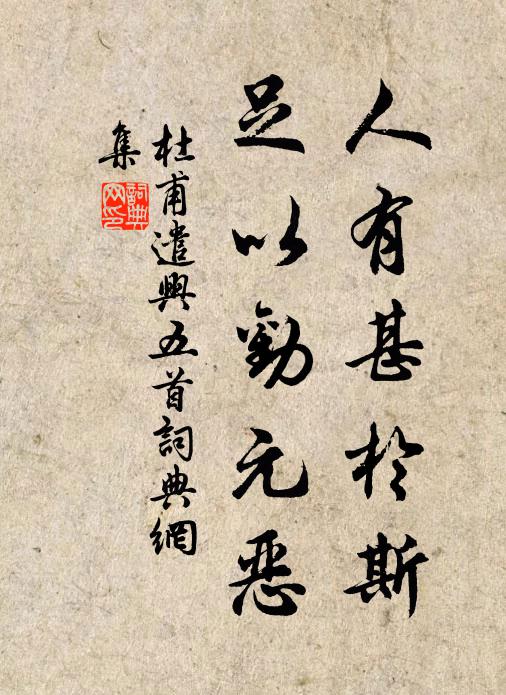 人有甚於斯
足以勸元惡
杜甫遣興五首詞典網
集
詞典網印